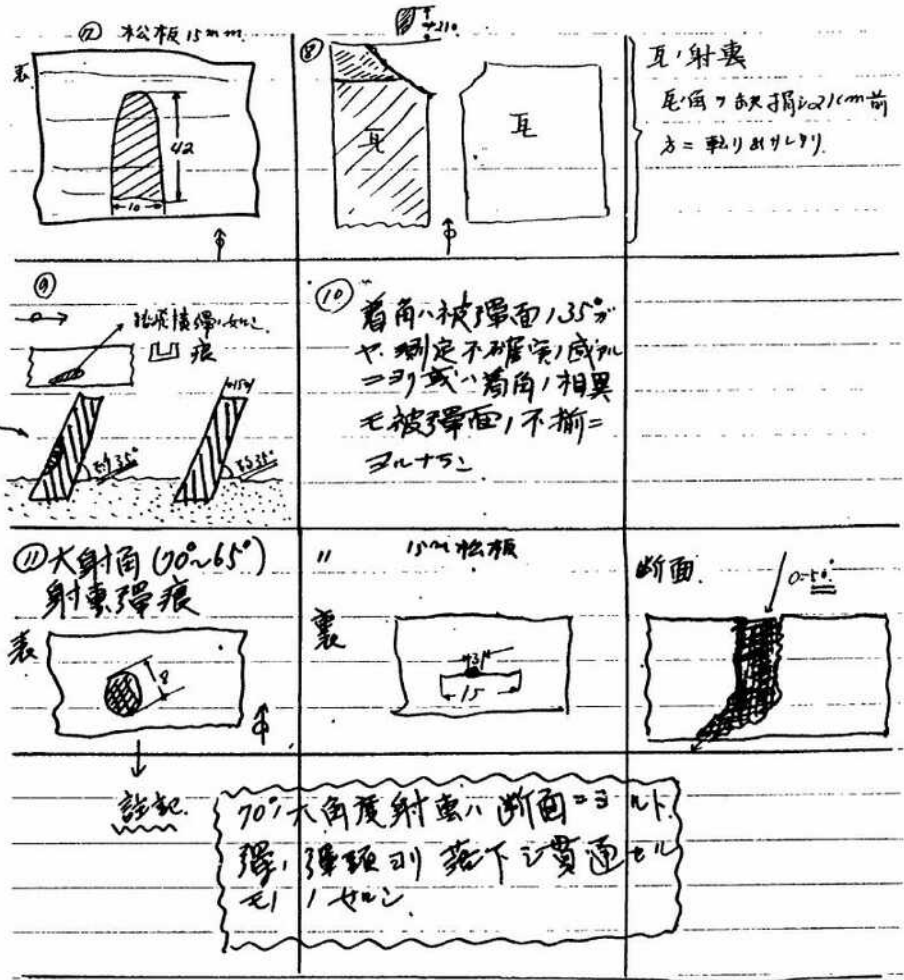 ⑦ 松板 15mm.
表
42
10
⑧
瓦
瓦
瓦ノ射裏
瓦ノ角ヲ欠損シ21cm前
方ニ転リ
⑨
痕
35°
35°
⑩
着角ハ被彈面ノ35°ガ
ヤヽ測定不確実ノ感アル
ニヨリ或ハ着角ノ相異
モ被彈面ノ不揃ニ
ヨルナラン
⑪ 大射角(70°~65°)
射裏彈痕
表
8
〃
15m 松板
裏
15
断面.
註記.
70°大角度射裏ハ断面ニヨルト
彈ノ彈頭ヨリ落下シ貫通セル
モノ